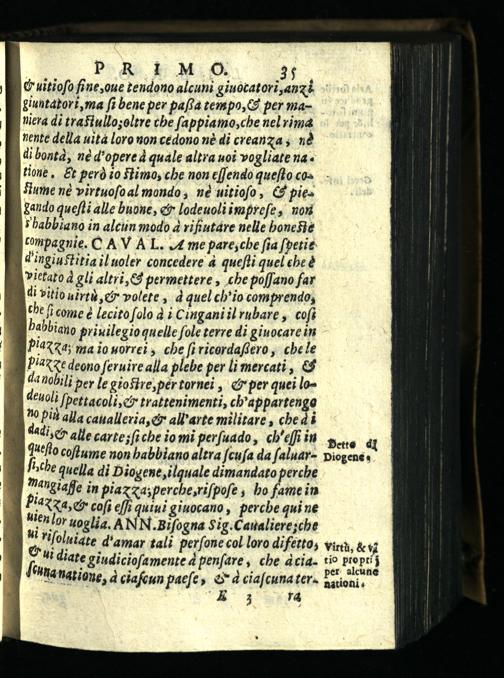 PRIMO. 35
& uitioso fine, oue tendono alcuni giuocatori, anzi
giuntatori, ma si bene per passa tempo, & per ma-
niera di trastullo; oltre che sappiamo, che nel rima
nente della uita loro non cedono nè di creanza, nè
di bontà, nè d'opere à quale altra uoi vogliate na-
tione. Et però io stimo, che non essendo questo co-
stume nè virtuoso al mondo, nè uitioso, & pie-
gando questi alle buone, & lodeuoli imprese, non
s'habbiano in alcun modo à rifiutare nelle honeste
compagnie. CAVAL. A me pare, che sia spetie
d'ingiustitia il uoler concedere à questi quel che è
vietato à gli altri, & permettere, che possano far
di vitio uirtù, & volete, à quel ch'io comprendo,
che si come è lecito solo à i Cingani il rubare, così
habbiano priuilegio quelle sole terre di giuocare in
piazza; ma io uorrei, che si ricordassero, che le
piazze deono seruire alla plebe per li mercati, &
da nobili per le giostre, per tornei, & per quei lo-
deuoli spettacoli, & trattenimenti, ch'appartengo
no più alla caualleria, & all'arte militare, che à i
dadi, & alle carte; si che io mi persuado, ch'essi in
questo costume non habbiano altra scusa da saluar-
si, che quella di Diogene, ilquale dimandato perche
mangiasse in piazza; perche, rispose, ho fame in
piazza, & così essi quiui giuocano, perche qui ne
uien lor uoglia. ANN. Bisogna Sig. Caualiere; che
ui risoluiate d'amar tali persone col loro difetto,
& ui diate giudiciosamente à pensare, che à cia-
scuna natione, à ciascun paese, & à ciascuna ter-
E 3 ra
Detto di
Diogene.
Virtù, & vi
tio proprij
per alcune
nationi.